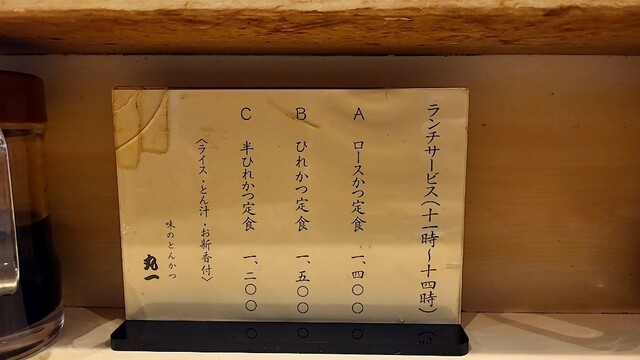 ランチサービス(十一時〜十四時)
A ロースかつ定食 一、四〇〇
B ひれかつ定食 一、五〇〇
C 半ひれかつ定食 一、二〇〇
〈ライス・とん汁・お新香付〉
味のとんかつ
丸一